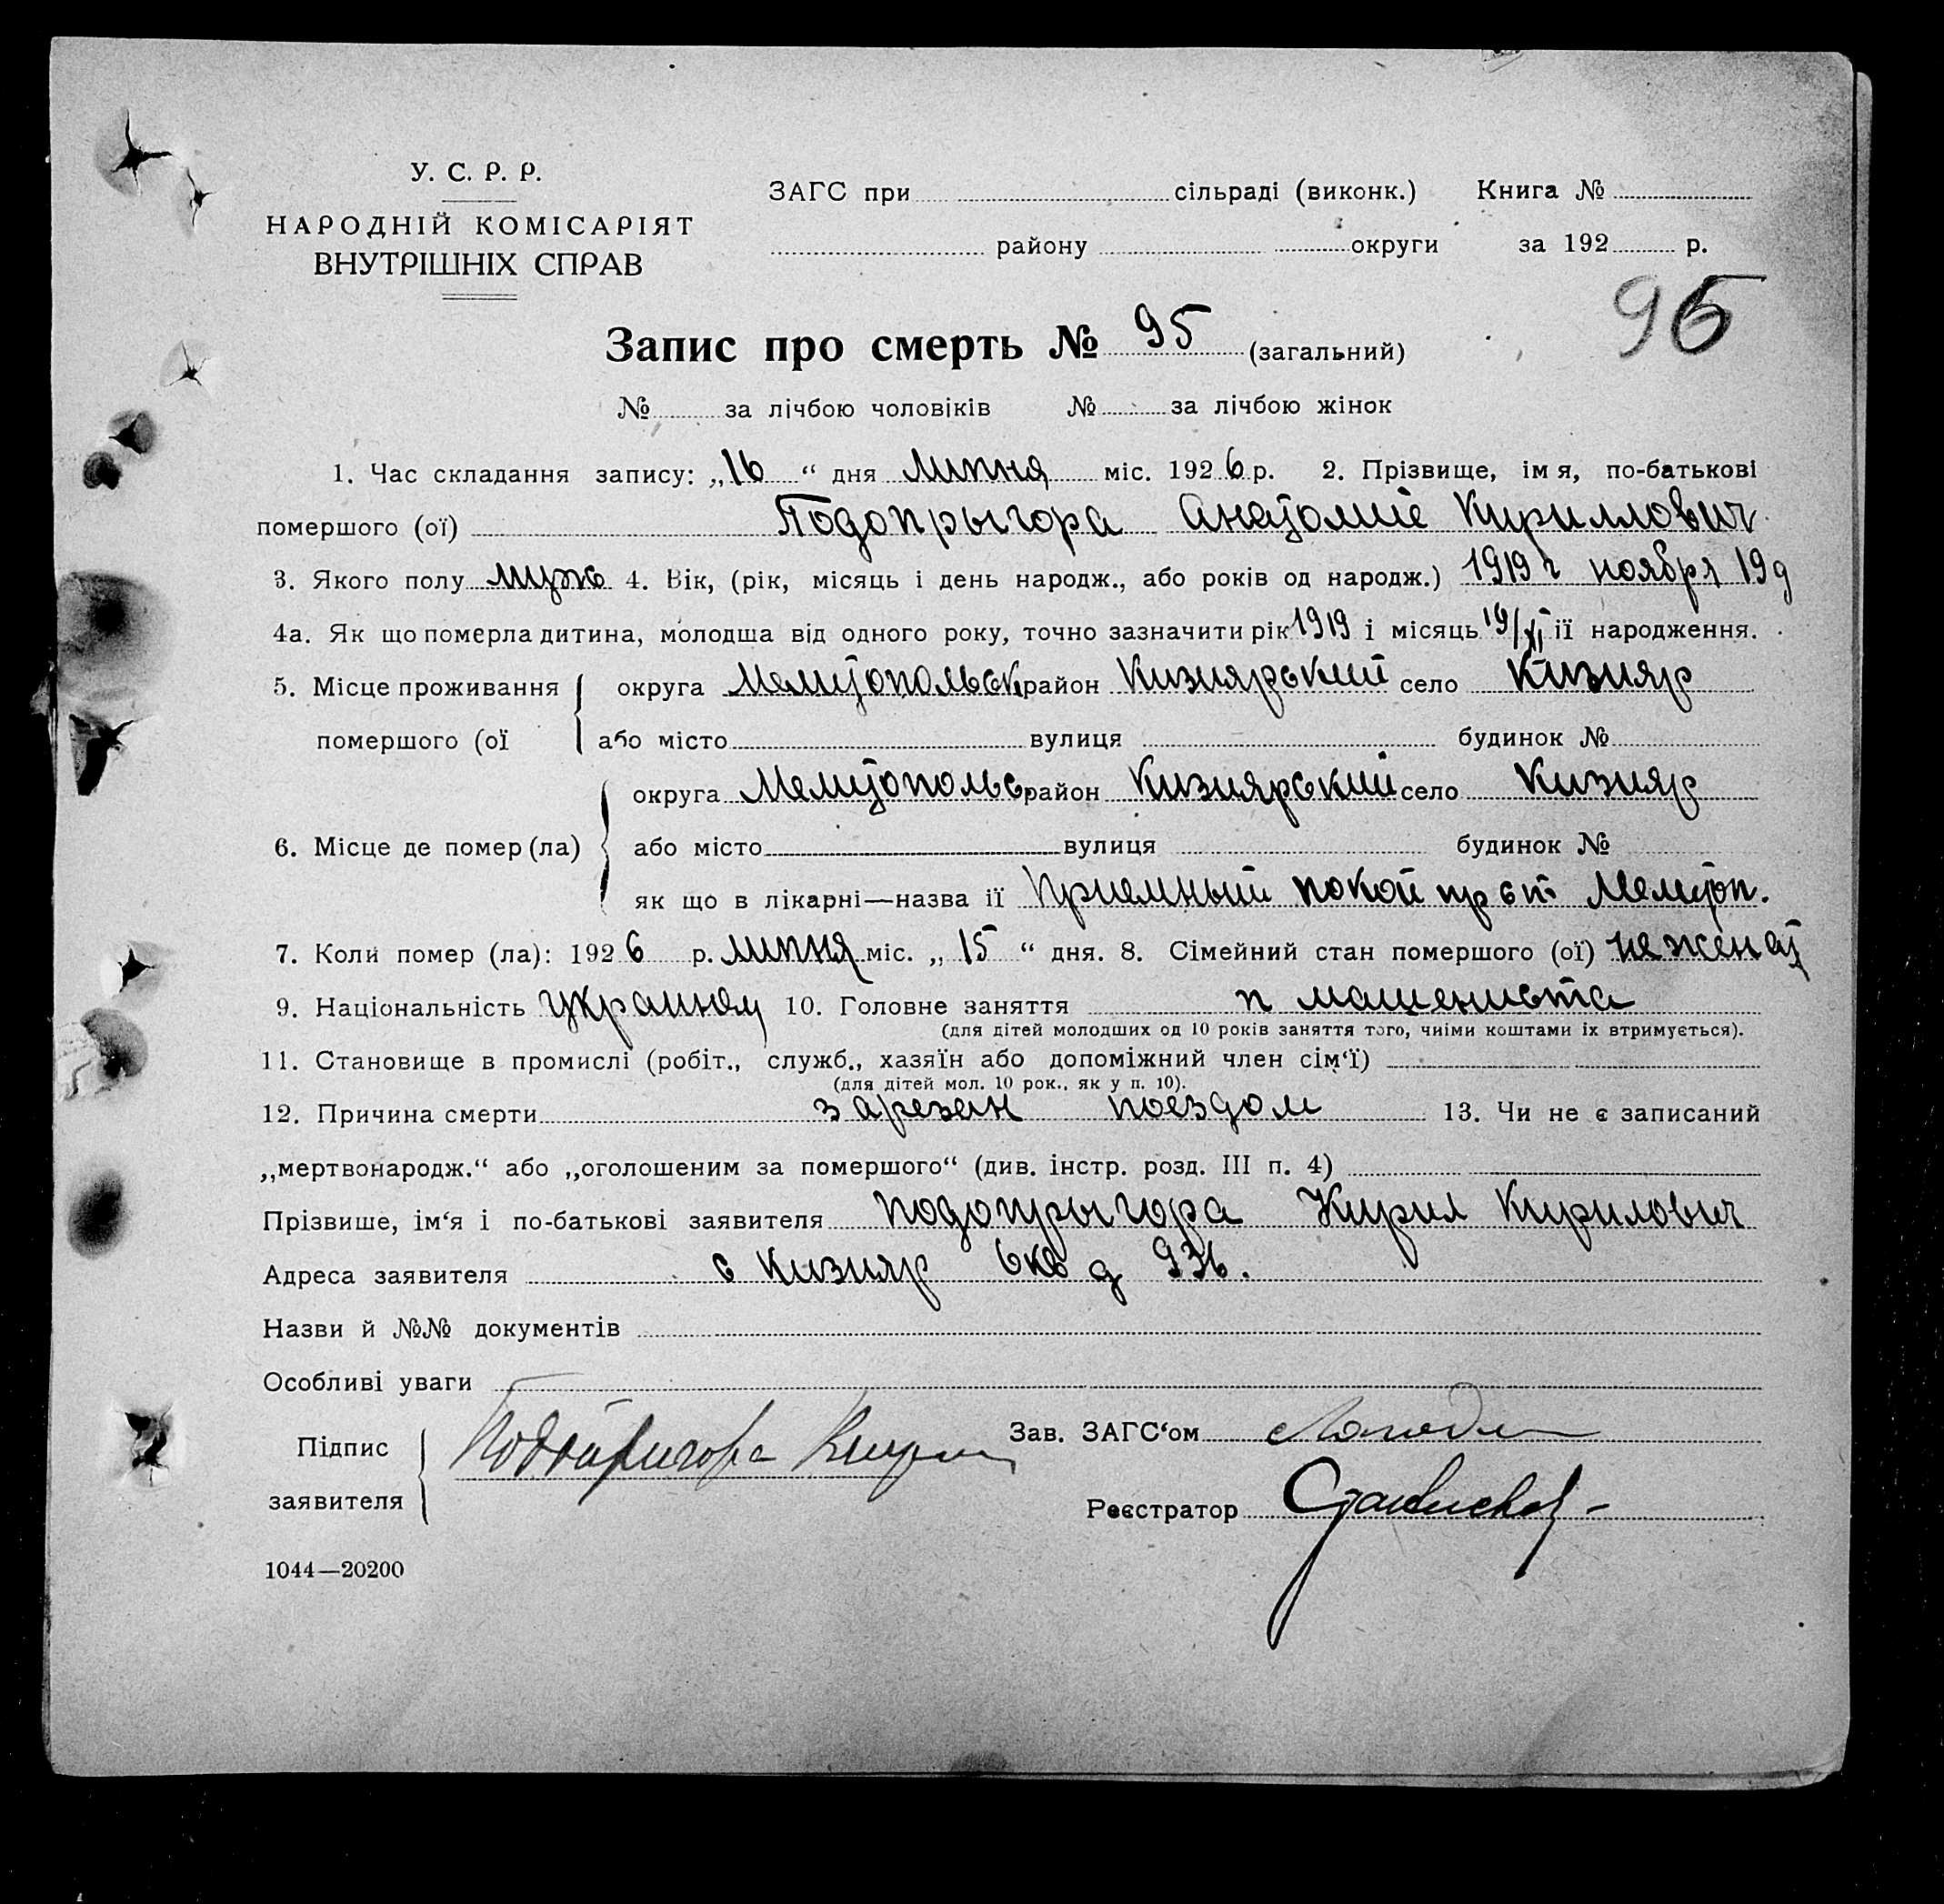 У. С. Р. Р.
НАРОДНІЙ КОМІСАРІЯТ
ВНУТРІШНІХ СПРАВ
ЗАГС при сільраді (виконк.) Книга №
району округи за 192 р.
95
Запис про смерть № 95 (загальний)
№ за лічбою чоловіків № за лічбою жінок
1. Час складання запису: „16“ дня липня міс. 1926 р. 2. Прізвище, ім я, по-батькові
помершого (ої) Подопрыгора Анатолий Кириллович
3. Якого полу муж 4. Вік, (рік, місяць і день народж., або років од народж.) 1919 г ноября 19 д
4а. Як що померла дитина, молодша від одного року, точно зазначити рік 1919 і місяць 19/XI її народження.
5. Місце проживання округа Мелитопольск район Кизиярский село Кизияр
помершого (ої або місто вулиця будинок №
округа Мелитопольс район Кизиярский село Кизияр
6. Місце де помер (ла) або місто вулиця будинок №
як що в лікарні—назва її Приемный покой пр ст Мелитоп.
7. Коли помер (ла): 1926 р. липня міс. „15“ дня. 8. Сімейний стан помершого (ої) не женат
9. Національність 10. Головне заняття п машениста
(для дітей молодших од 10 років заняття того, чиїми коштами їх втримується).
11. Становище в промислі (робіт., служб., хазяїн або допоміжний член сім‘ї)
(для дітей мол. 10 рок., як у п. 10).
12. Причина смерти зарезан поездом 13. Чи не є записаний
„мертвонародж.“ або „оголошеним за помершого“ (див. інстр. розд. III п. 4)
Прізвише, ім‘я і по-батькові заявителя подопрыгора Кирил Кирилович
Адреса заявителя с Кизияр 6 кв д 936.
Назви й №№ документів
Особливі уваги
Підпис
заявителя
Зав. ЗАГС‘ом
Реєстратор
1044—20200